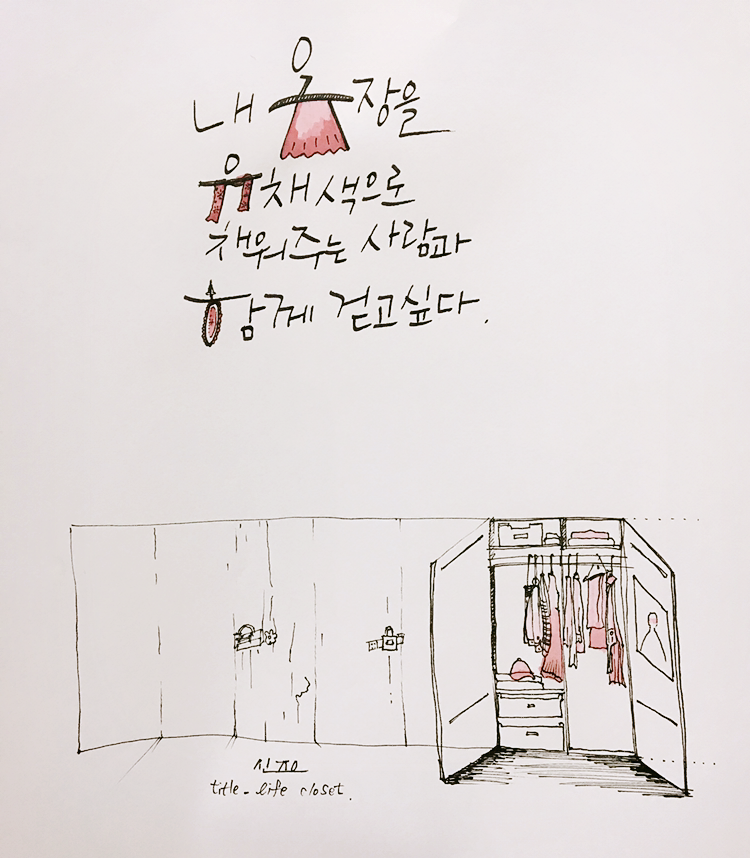 내 옷장을
유채색으로
채워주는 사람과
함께 걷고싶다.
title - life closet.